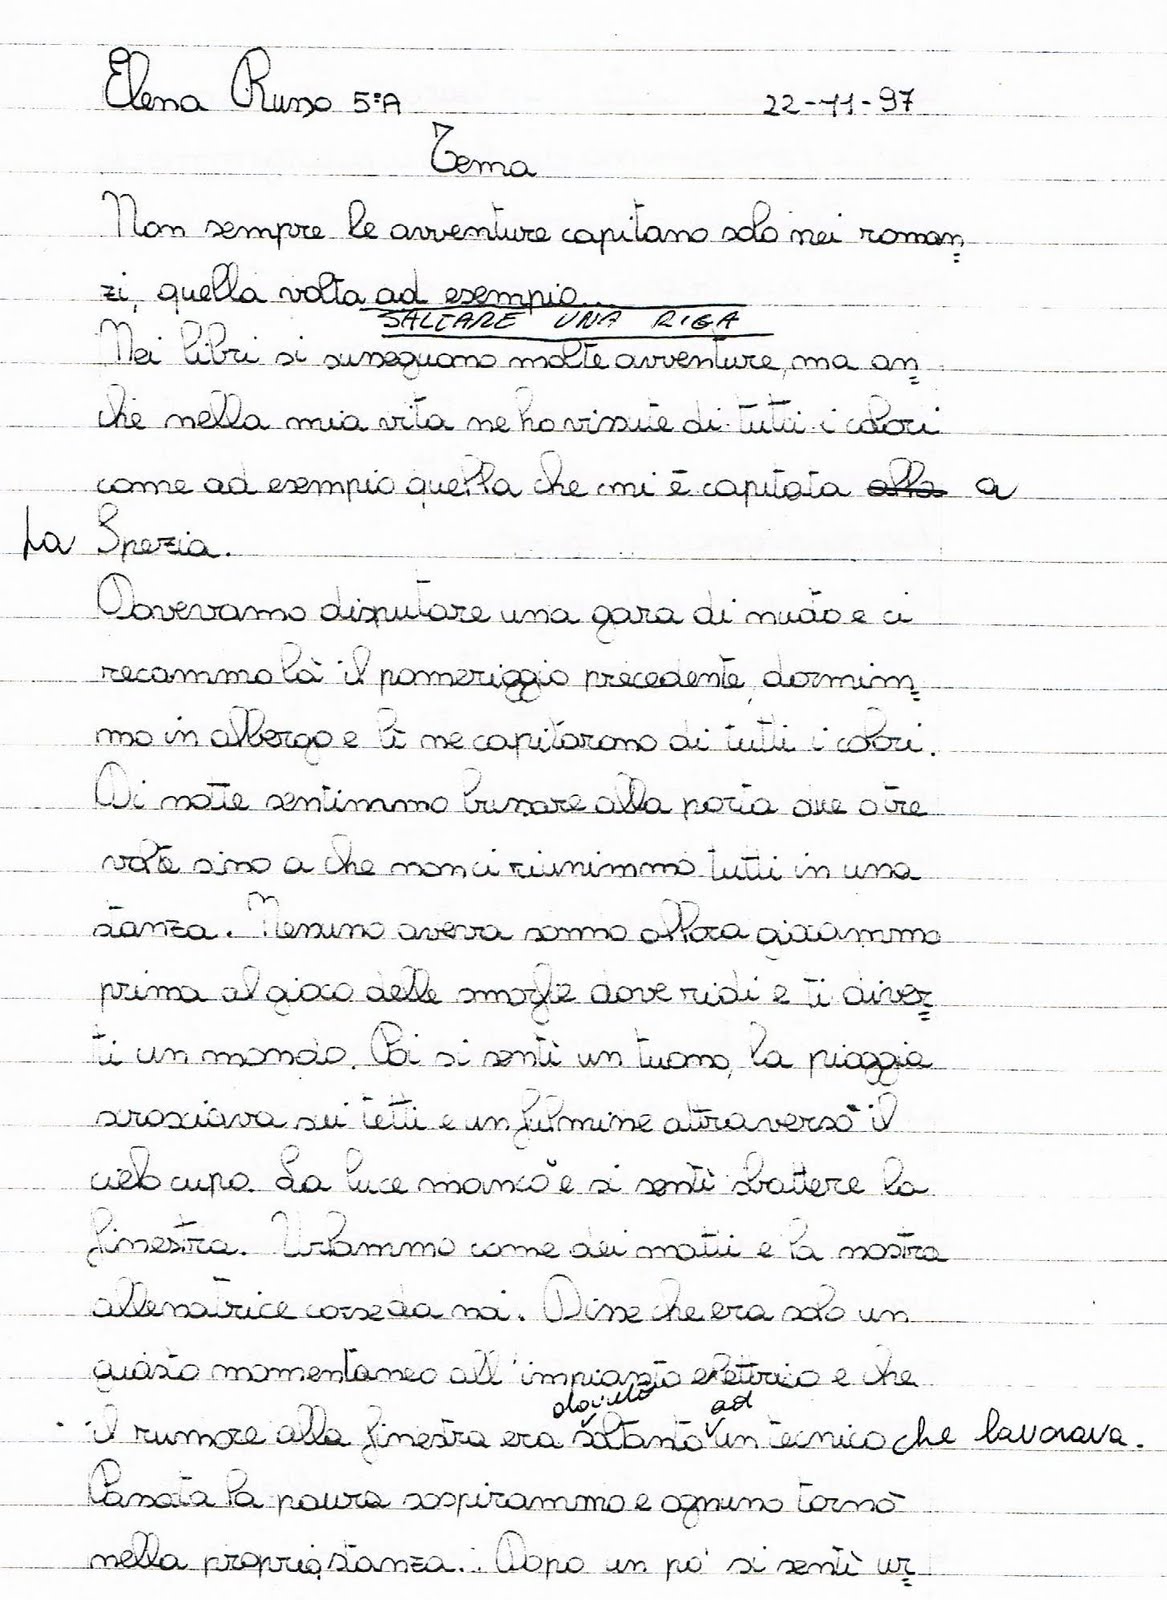 Elena Russo 5ªA 22-11-97
Tema
Non sempre le avventure capitano solo nei roman=
zi, quella volta ad esempio...
SALTARE UNA RIGA
Nei libri si susseguono molte avventure, ma an=
che nella mia vita ne ho vissute di tutti i colori
come ad esempio quella che mi è capitata alla a
La Spezia.
Dovevamo disputare una gara di nuoto e ci
recammo là il pomeriggio precedente, dormim=
mo in albergo e lì ne capitarono di tutti i colori.
Di notte sentimmo bussare alla porta due o tre
volte sino a che non ci riunimmo tutti in una
stanza. Nessuno aveva sonno allora giocammo
prima al gioco delle smorfie dove ridi e ti diver=
ti un mondo. Poi si sentì un tuono, la pioggia
scrosciava sui tetti e un fulmine attraversò il
cielo cupo. La luce mancò e si sentì sbattere la
finestra. Urlammo come dei matti e la nostra
allenatrice corse da noi. Disse che era solo un
guasto momentaneo all'impianto elettrico e che
dovuto ad
il rumore alla finestra era soltanto un tecnico che lavorava.
Passata la paura sospirammo e ognuno tornò
nella propria stanza. Dopo un po' si sentì ur=